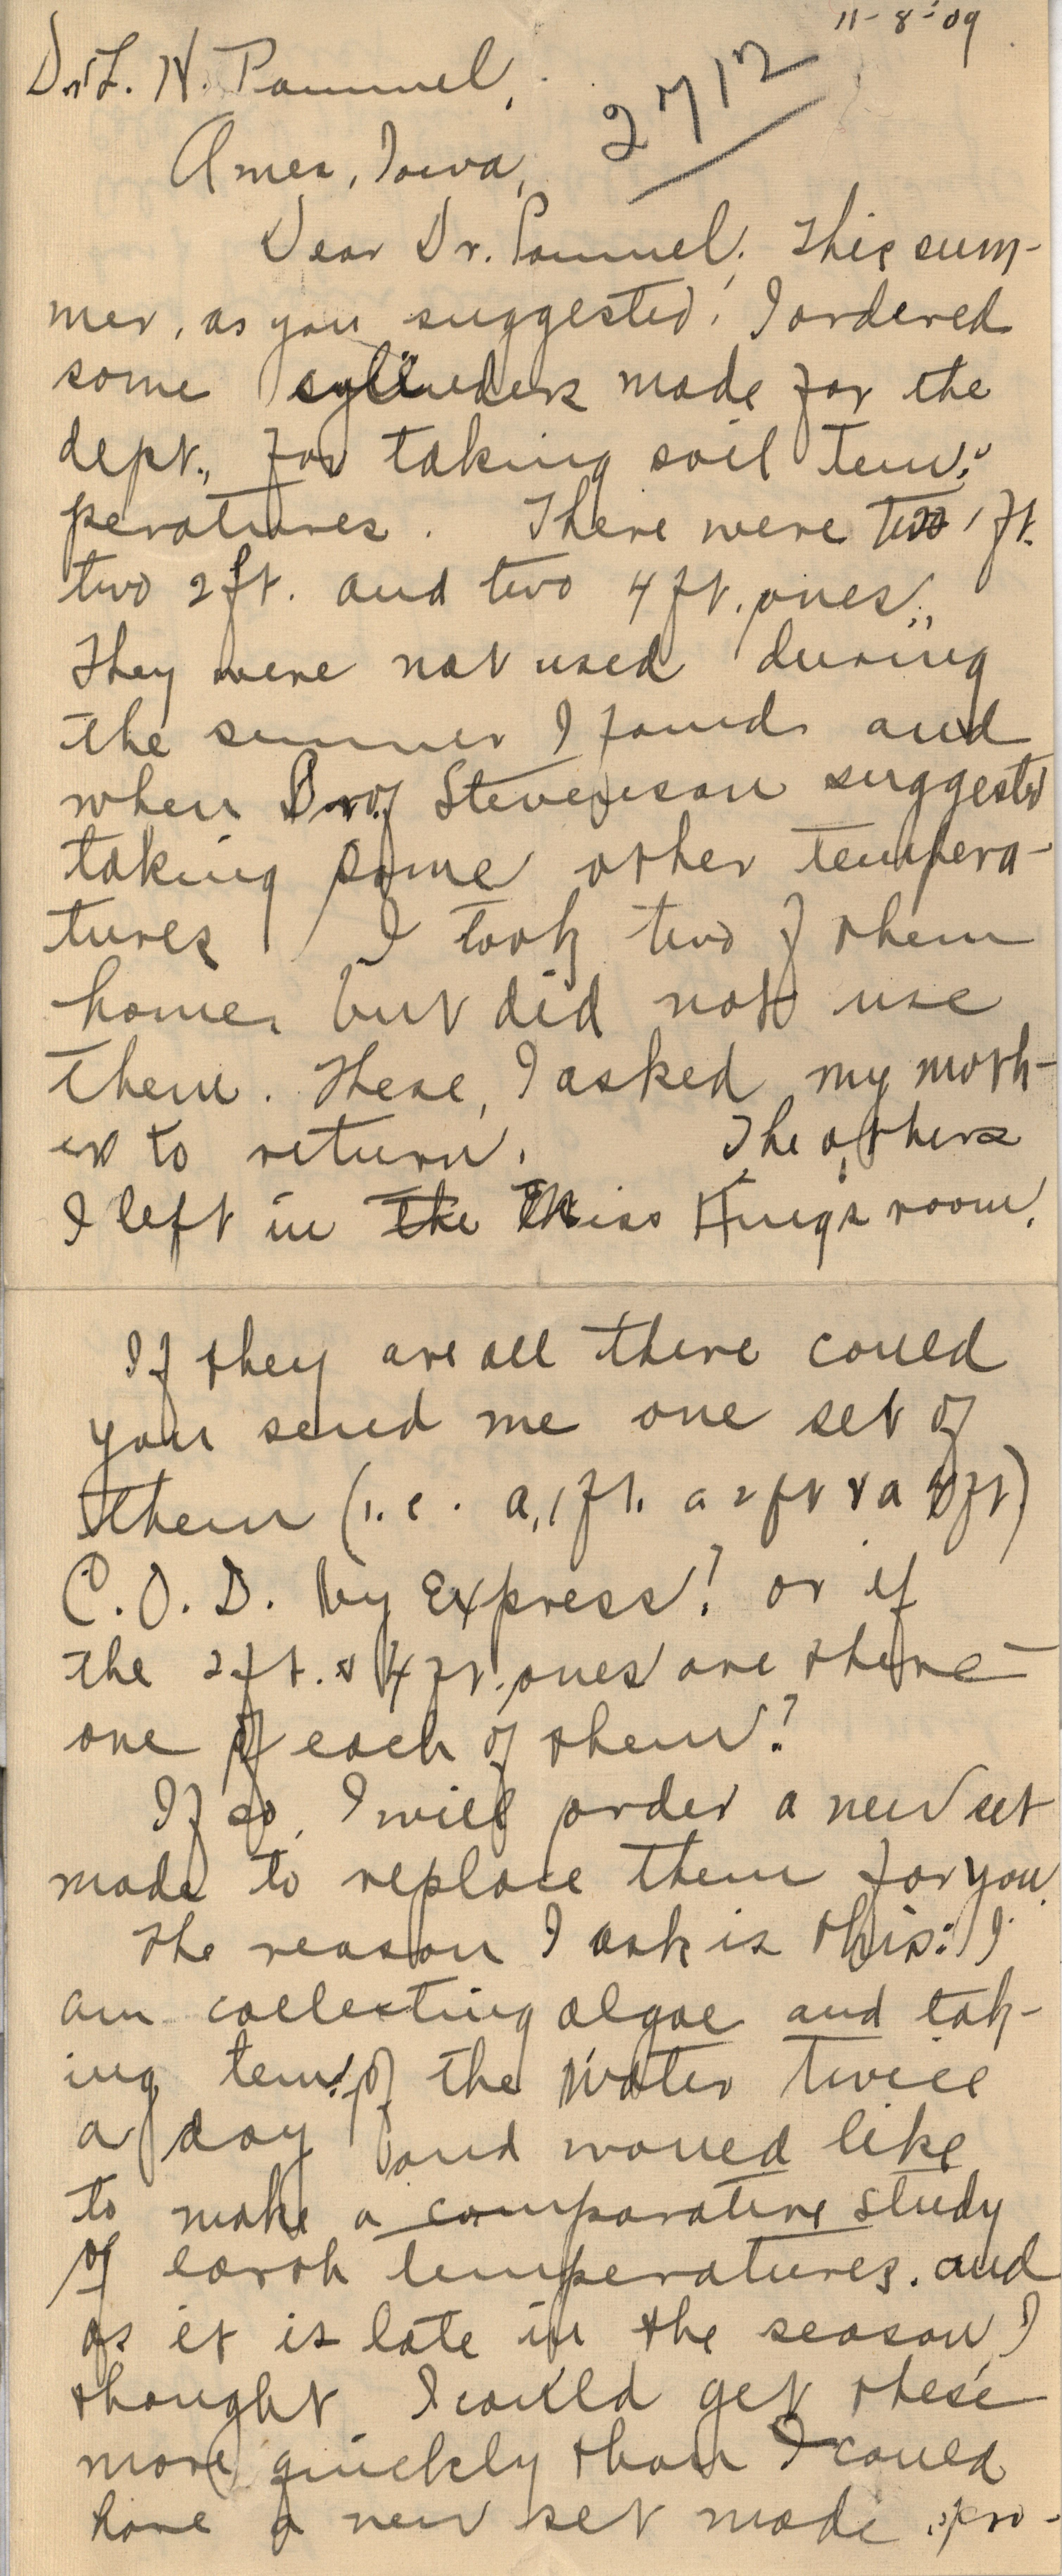 11-8-'09
Dr L. H. Pammel,
2712
Ames, Iowa,
Dear Dr. Pammel; This sum-
mer, as you suggested, I ordered
some cylinders made for the
dept., for taking soil tem-
peratures. There were two 1 ft.
two 2 ft. and two 4 ft. ones.
They were not used during
the summer I found and
when Prof Stevenson suggested
taking some other tempera-
tures I took two of them
home, but did not use
them. These, I asked my moth-
er to return. The others
I left in the Miss King's room.
If they are all there could
you send me one set of
them (i.e. a 1 ft. a 2 ft & a 4 ft)
C.O.D. by Express? or if
the 2 ft. & 4 ft. ones are there—
one of each of them?
If so, I will order a new set
made to replace them for you.
The reason I ask is this: I
am collecting algae and tak-
ing temp. of the water twice
a day and would like
to make a comparative study
of earth temperatures. and
as it is late in the season I
thought I could get these
more quickly than I could
have a new set made, pro-